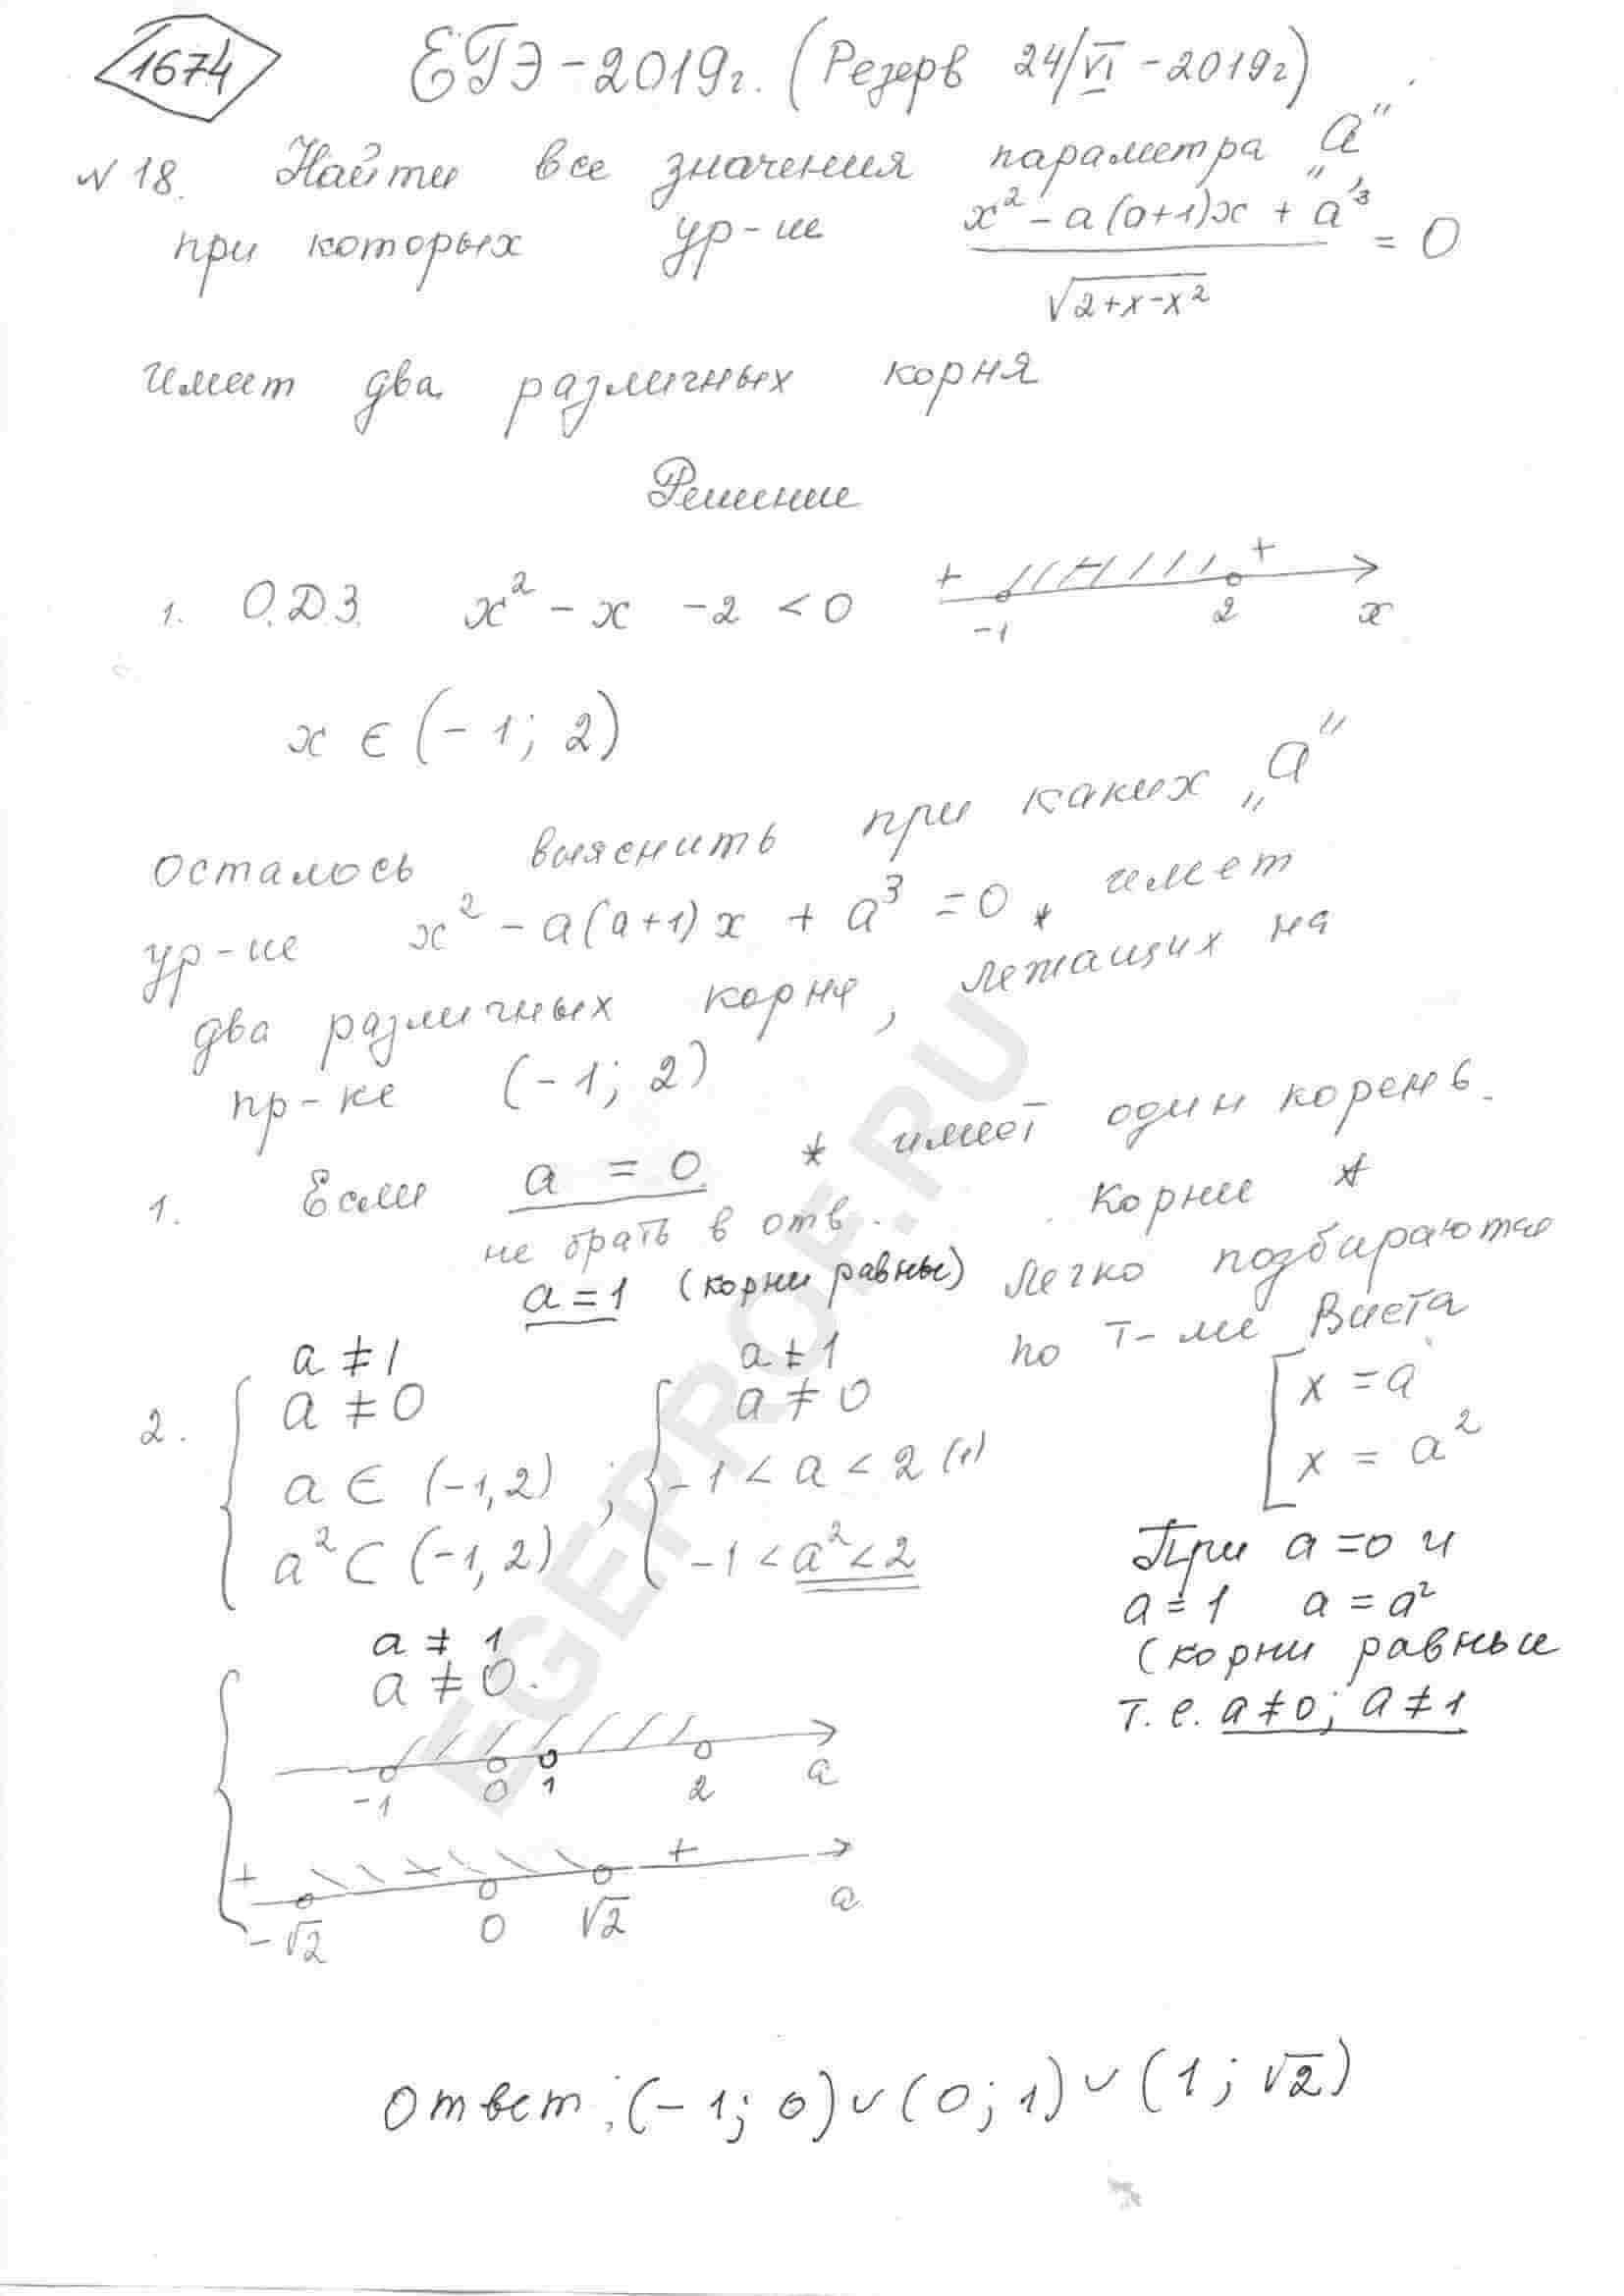 1674
ЕГЭ-2019г. (Резерв 24/VI-2019г)
№18. Найти все значения параметра „а",
при которых ур-ие (x² - a(a+1)x + a³)/√(2+x-x²) = 0
имеет два различных корня
Решение
1. О.Д.З. x² - x - 2 < 0
+ +
-1 2 x
x ∈ (-1; 2)
Осталось выяснить при каких „а"
ур-ие x² - a(a+1)x + a³ = 0 * имеет
два различных корня, лежащих на
пр-ке (-1; 2)
1. Если a = 0 * имеет один корень.
не брать в отв.
a = 1 (корни равны)
Корни *
легко подбираются
по т-ме Виета
x = a
x = a²
При a = 0 и
a = 1 a = a²
(корни равные
т.е. a ≠ 0; a ≠ 1
2. a ≠ 1
a ≠ 0
a ∈ (-1, 2)
a² ⊂ (-1, 2)
;
a ≠ 1
a ≠ 0
-1 < a < 2 (1)
-1 < a² < 2
a ≠ 1
a ≠ 0.
-1 0 1 2 a
+ - +
-√2 0 √2 a
Ответ: (-1; 0) ∪ (0; 1) ∪ (1; √2)
EGEPROF.RU